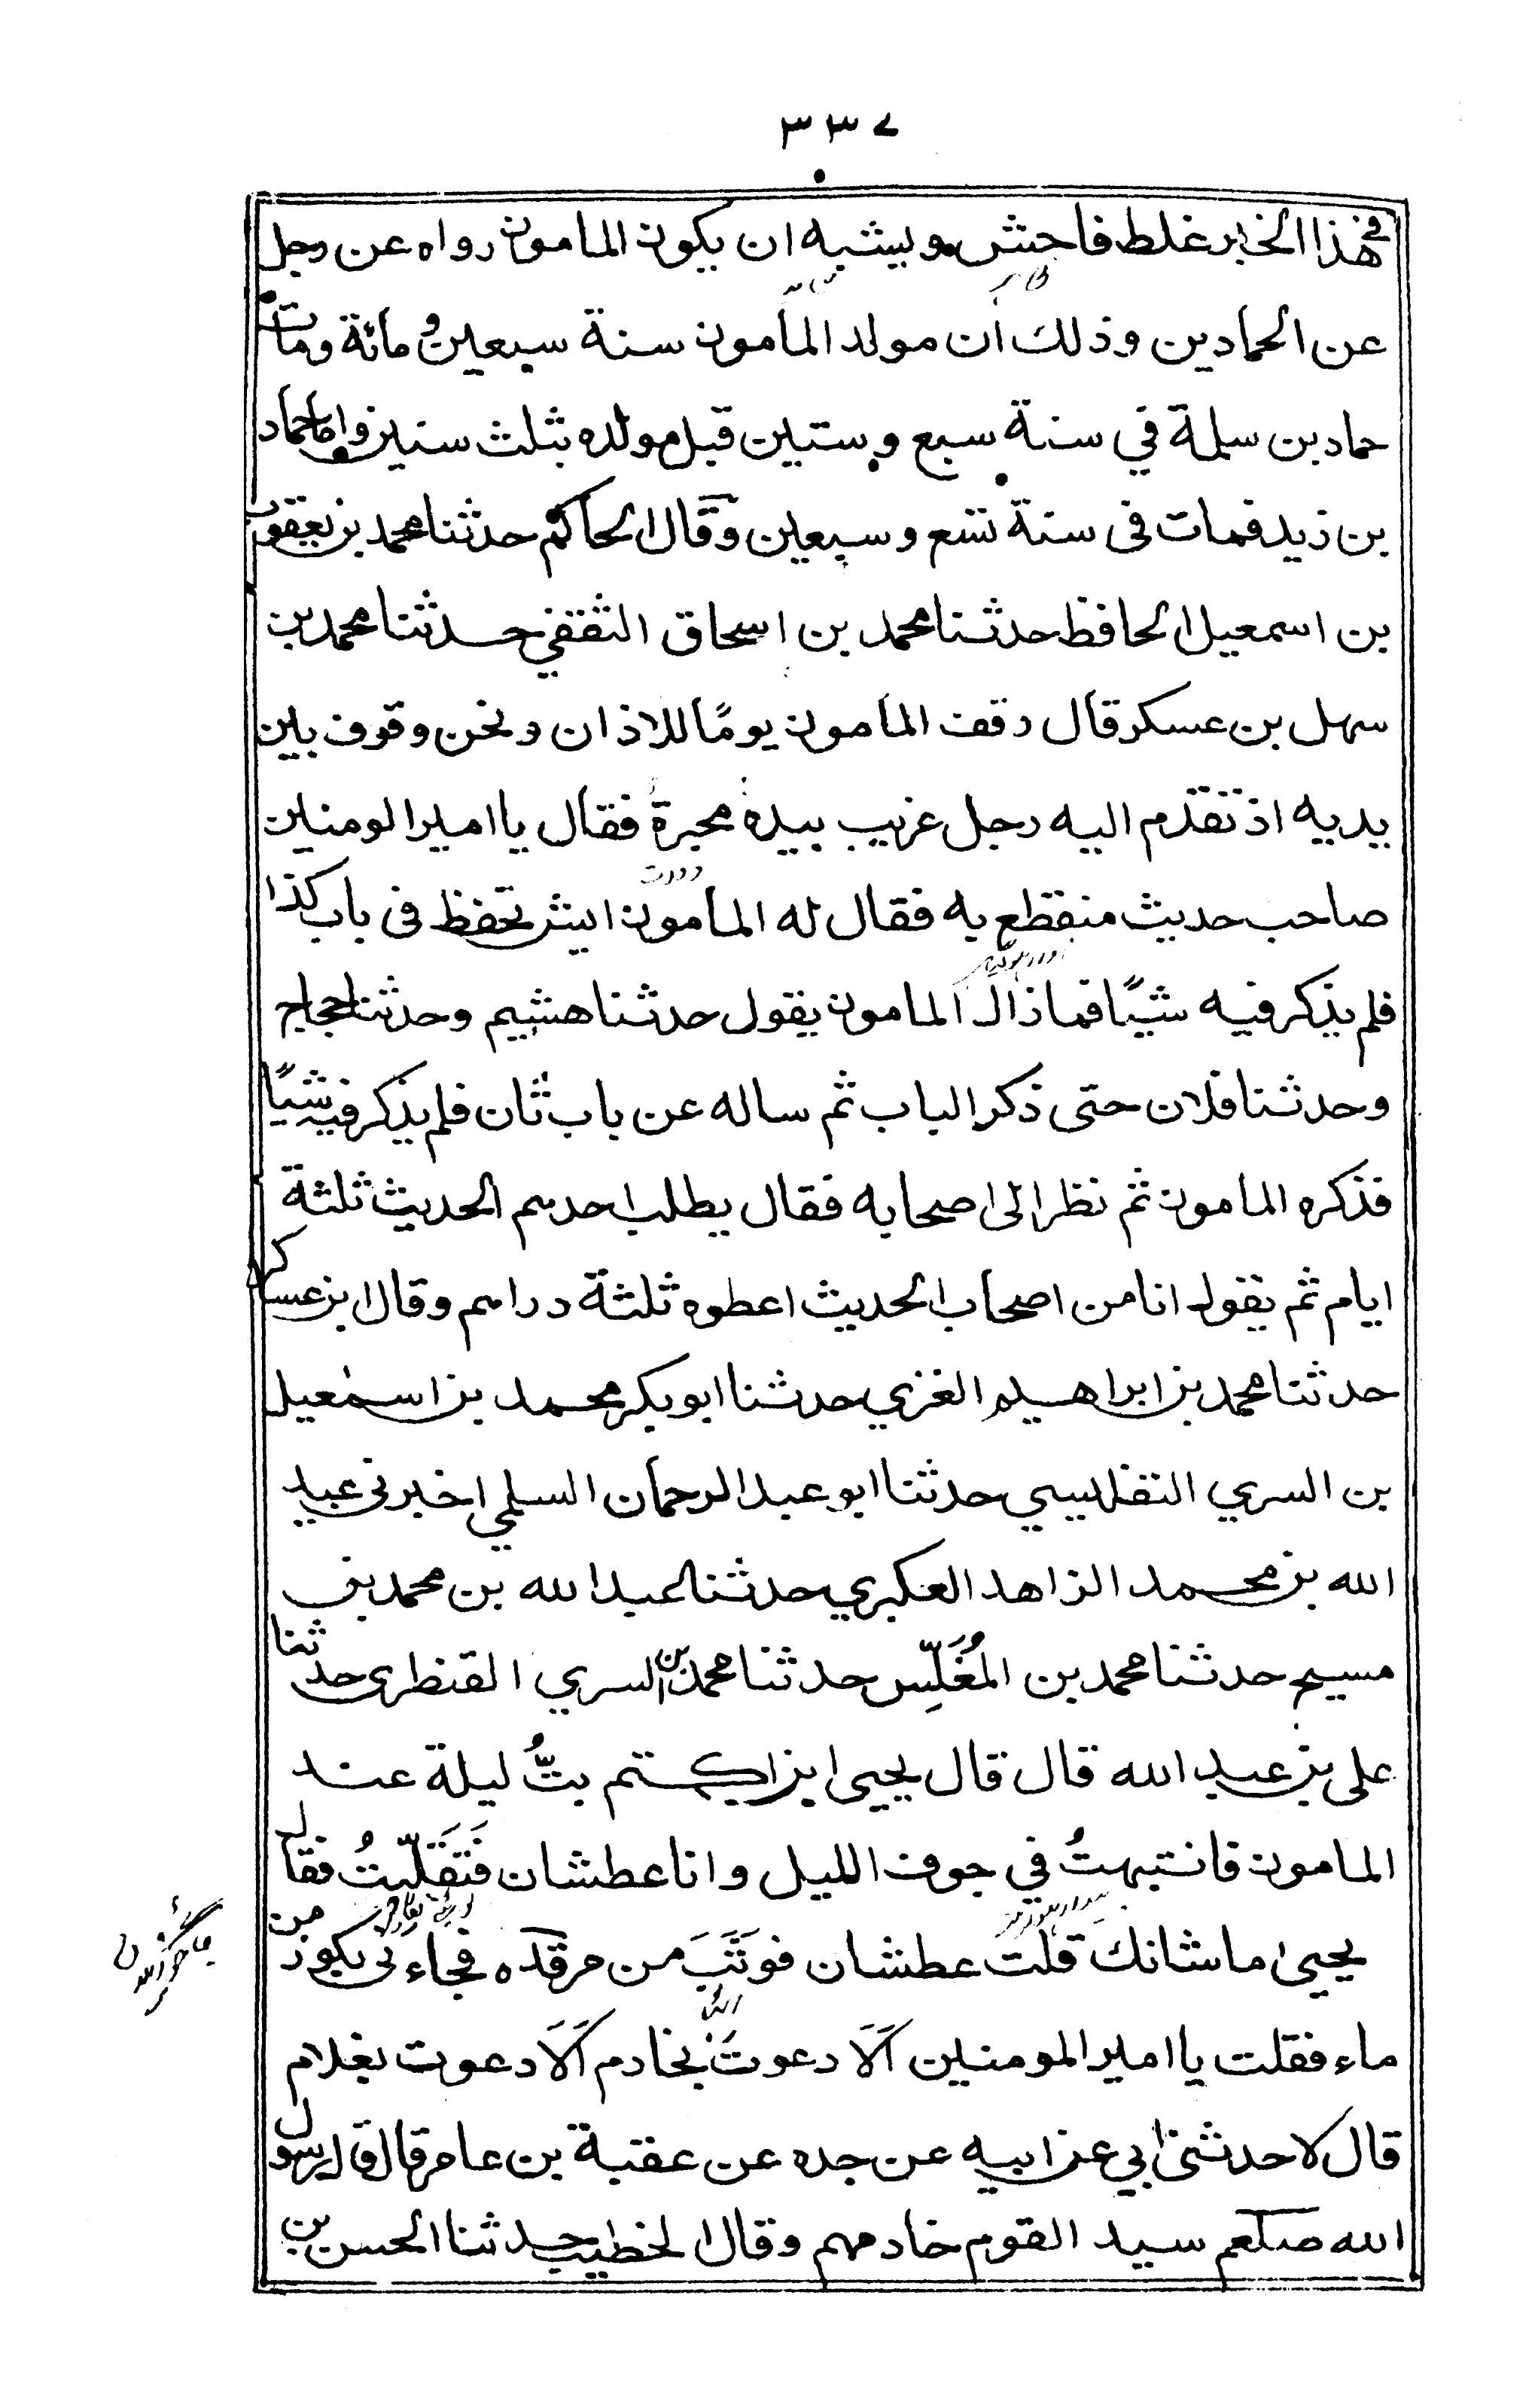 ٣٣٧
في هذا الخبر غلط فاحش ويشبه ان يكون المامون رواه عن رجل
عن الحمادين وذلك ان مولد المامون سنة سبعين ومائة ومات
حماد بن سلمة في سنة سبع وستين قبل مولده بثلث سنين واما حماد
بن زيد فمات فى سنة تسع وسبعين وقال الحاكم حدثنا محمد بن يعقوب
بن اسمعيل الحافظ حدثنا محمد بن اسحاق الثقفي حدثنا محمد بن
سهل بن عسكر قال وقف المامون يومًا للاذان ونحن وقوف بين
يديه اذ تقدم اليه رجل غريب بيده محبرة فقال يا امير المومنين
صاحب حديث منقطع به فقال له المامون ايش تحفظ فى باب كذا
فلم يذكر فيه شيئًا فما زال المامون يقول حدثنا هشيم وحدثنا حجاج
وحدثنا فلان حتى ذكر الباب ثم ساله عن باب ثان فلم يذكر فيه شيئًا
فذكره المامون ثم نظر الى اصحابه فقال يطلب احدهم الحديث ثلثة
ايام ثم يقول انا من اصحاب الحديث اعطوه ثلثة دراهم وقال ابن عساكر
حدثنا محمد بن ابراهيم الغزي حدثنا ابو بكر محمد بن اسمٰعيل
بن السري التفليسي حدثنا ابو عبد الرحمان السلمي اخبرنى عبيد
الله بن محمد الزاهد العكبري حدثنا عبد الله بن محمد بن
مسيح حدثنا محمد بن المُغَلِّس حدثنا محمد بن السري القنطرى حدثنا
على بن عبد الله قال قال يحيى ابن اكثم بتُّ ليلة عند
المامون فانتبهتُ في جوف الليل وانا عطشان فَتَقَلَّبتُ فقال
يحيىٰ ما شانك قلت عطشان فوَثَبَ من مرقده فجاءنى بكوز من
ماء فقلت يا امير المومنين اَلَا دعوتَ بخادم اَلَا دعوت بغلام
قال لا حدثنى ابي عن ابيه عن جده عن عقبة بن عامر قال قال رسول
الله صلعم سيد القوم خادمهم وقال الخطيب حدثنا الحسن بن